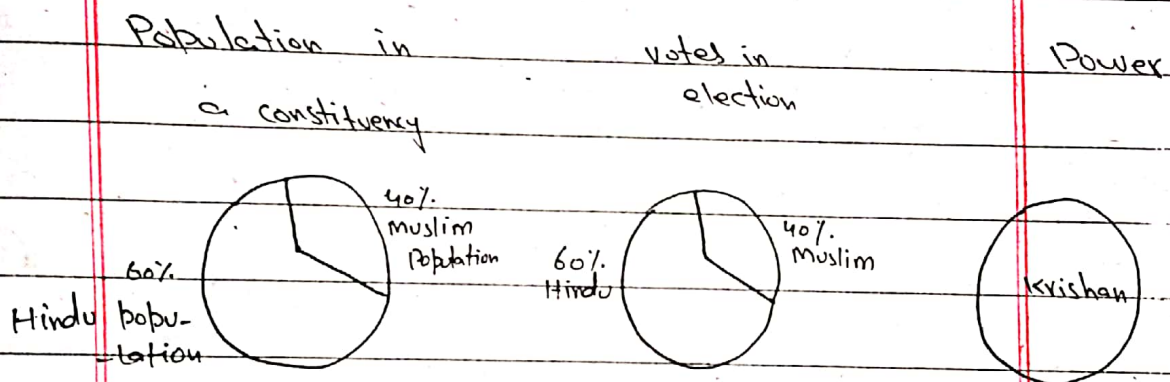 Population in
a constituency
votes in
election
Power
40%.
Muslim
Population
60%.
Hindu popu-
-lation
40%.
Muslim
60%.
Hindu
Krishan